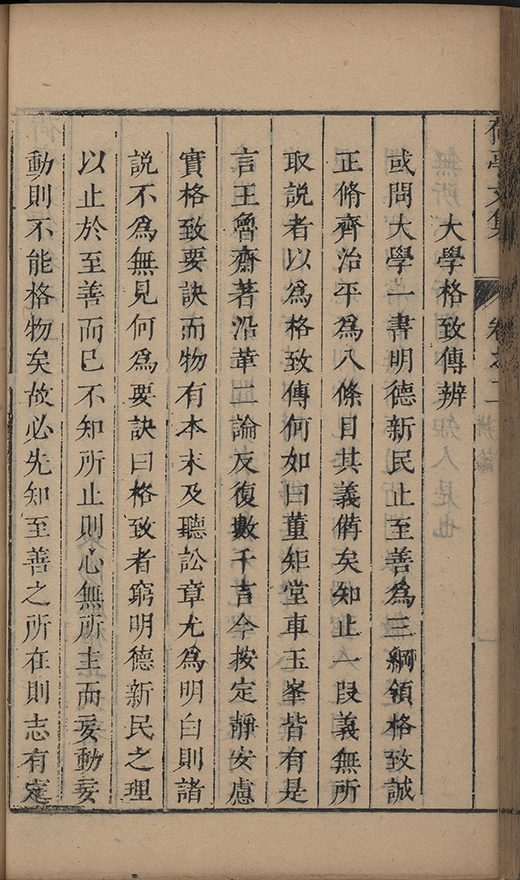 荷亭文集 卷之二
大學格致傳辨
或問大學一書明德新民止至善爲三綱領格致誠
正脩齊治平爲八條目其義備矣知止一段義無所
取說者以爲格致傳何如曰董矩堂車玉峯皆有是
言王魯齋著沿革二論反復數千言今按定靜安慮
實格致要訣而物有本末及聽訟章尤爲明白則諸
說不爲無見何爲要訣曰格致者窮明德新民之理
以止於至善而已不知所止則心無所主而妄動妄
動則不能格物矣故必先知至善之所在則志有定